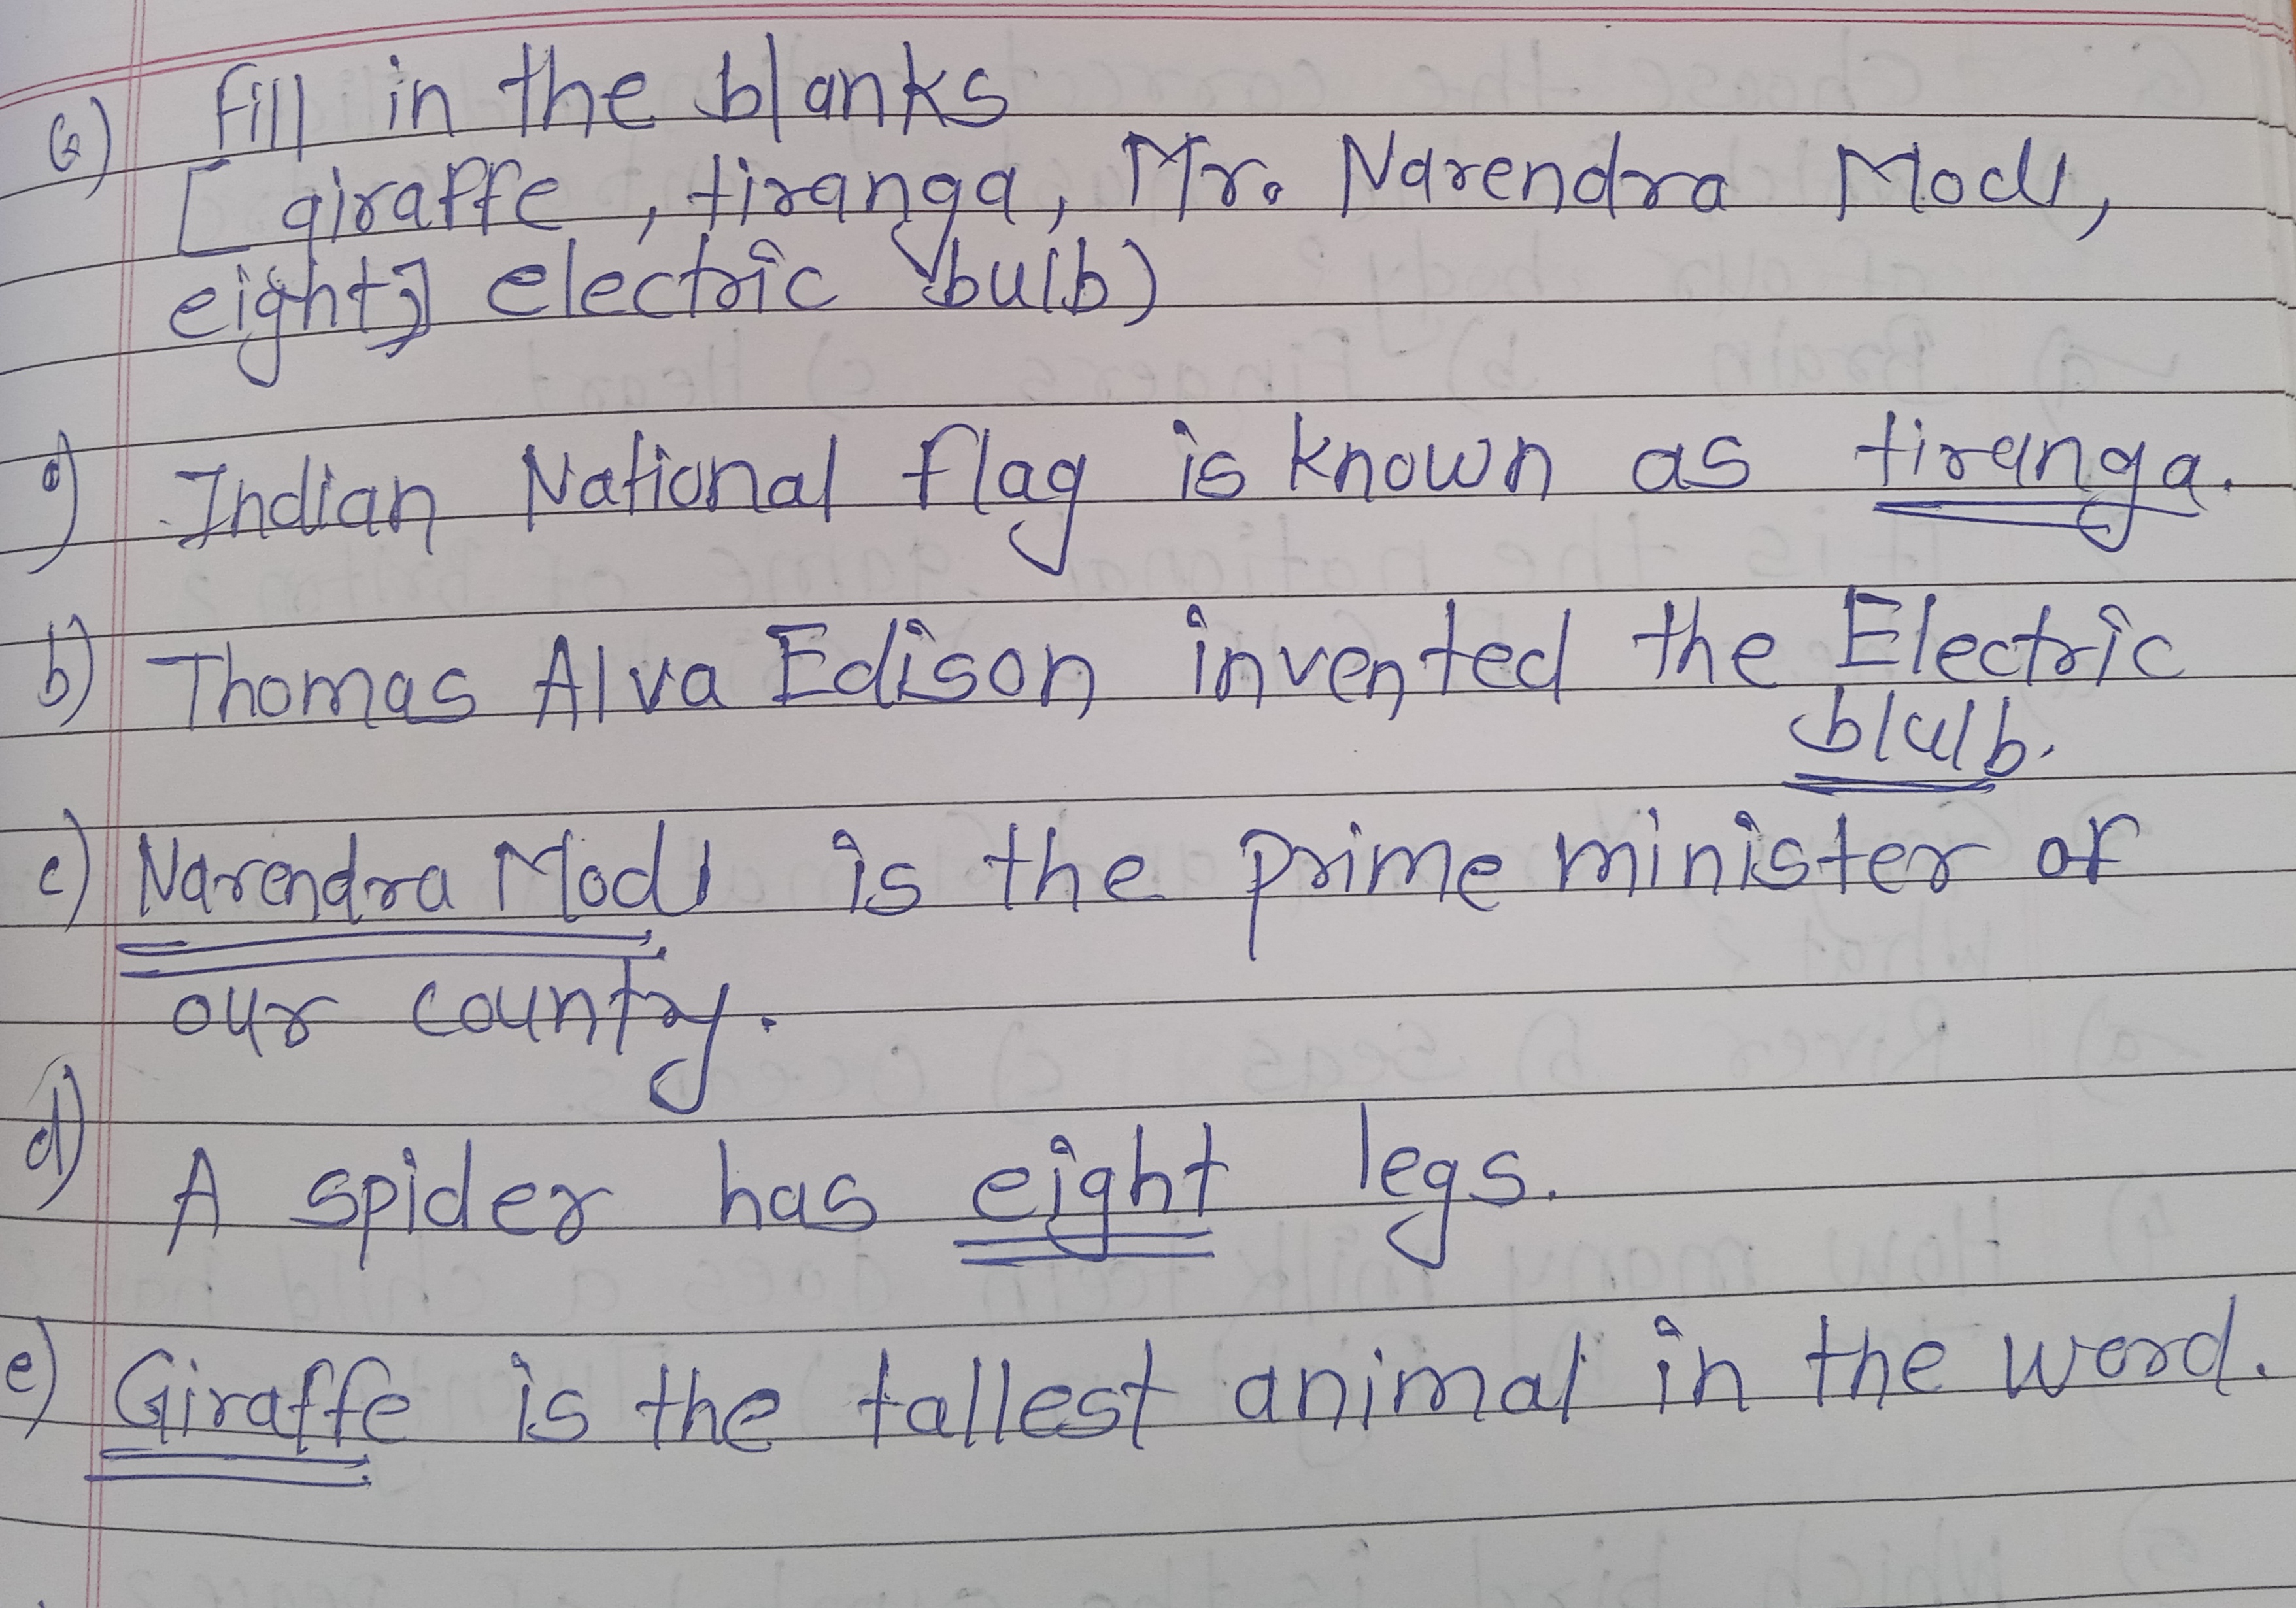 6) Fill in the blanks
[ giraffe , tiranga, Mr. Narendra Modi,
eight] electric bulb)
a) Indian National flag is known as tiranga.
b) Thomas Alva Edison invented the Electric
blulb.
c) Narendra Modi is the prime minister of
our country.
d) A spider has eight legs.
e) Giraffe is the tallest animal in the word.